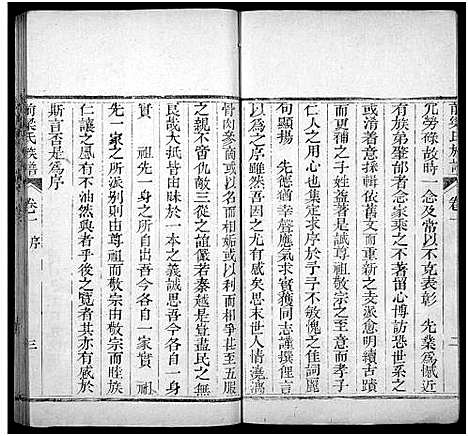 冗勞碌故時一念及常以不克表彰　先業爲憾近
有族弟肇部者念家乘之久心博訪恐後凡其世系
或湑者意探輯依舊文而重新之支派愈明續古蹟
之子姓益著是誠尊祖敬宗之至意而孝子
仁人之用心也求序於予予不敏愧乏佳詞麗
句顯揚　先幸聲應氣求實獲同志謹撰俚言
以爲之序雖然吾因是有感矣思末世人情澆漓
骨肉參商或同室而相妬或以爲貴而相凌甚至五服
之親不啻仇敵三黨之誼儼若秦越是豈盡民之無
良哉大抵皆由昧於一本之義誠思吾今各一身
實　祖先一身之所自出吾今各一家實　祖
先一家之所派别則由尊祖而敬宗由敬宗而睦族
仁讓之風有不油然興者乎後之覽者其亦有感於
斯言否是爲序
前梁氏族譜
卷一
序
二
前梁氏族譜
卷一　序
三